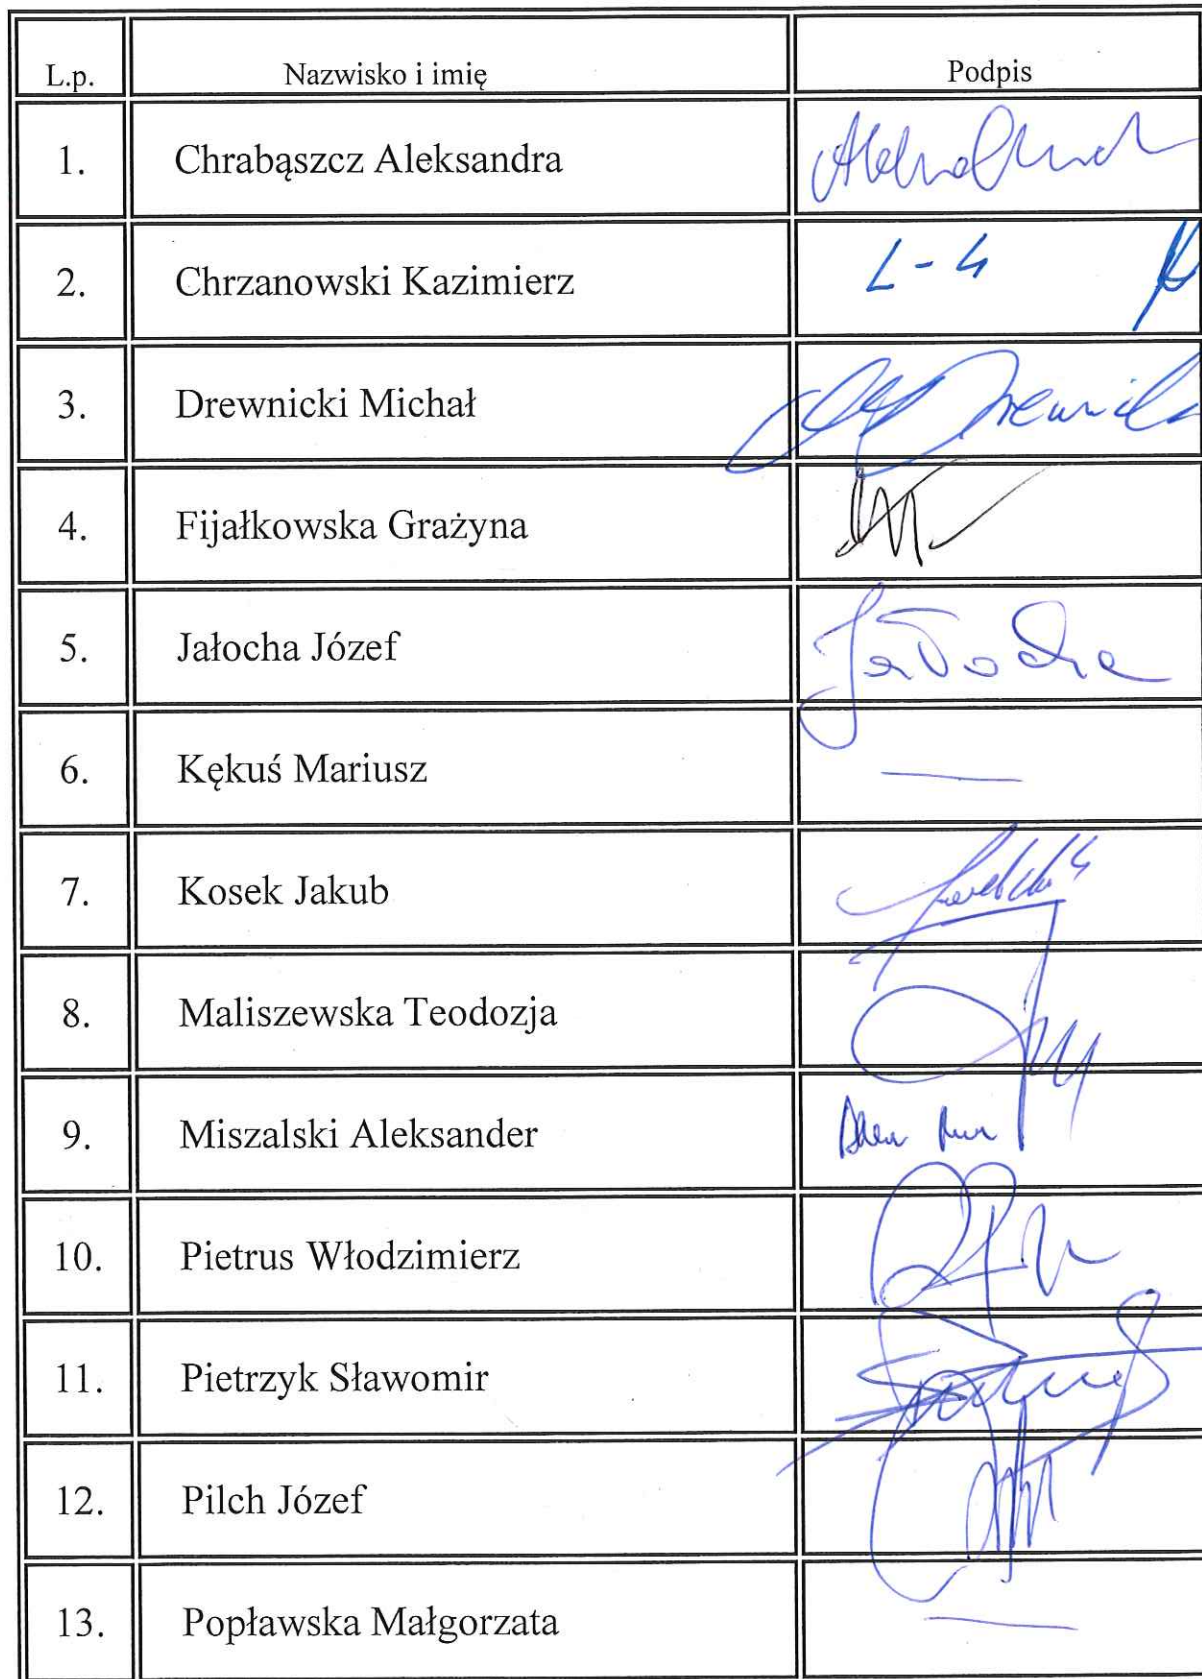 L.p. Nazwisko i imię Podpis
1. Chrabąszcz Aleksandra
2. Chrzanowski Kazimierz L-4
3. Drewnicki Michał Drewnicki
4. Fijałkowska Grażyna
5. Jałocha Józef Jałocha
6. Kękuś Mariusz —
7. Kosek Jakub
8. Maliszewska Teodozja
9. Miszalski Aleksander
10. Pietrus Włodzimierz
11. Pietrzyk Sławomir
12. Pilch Józef
13. Popławska Małgorzata —